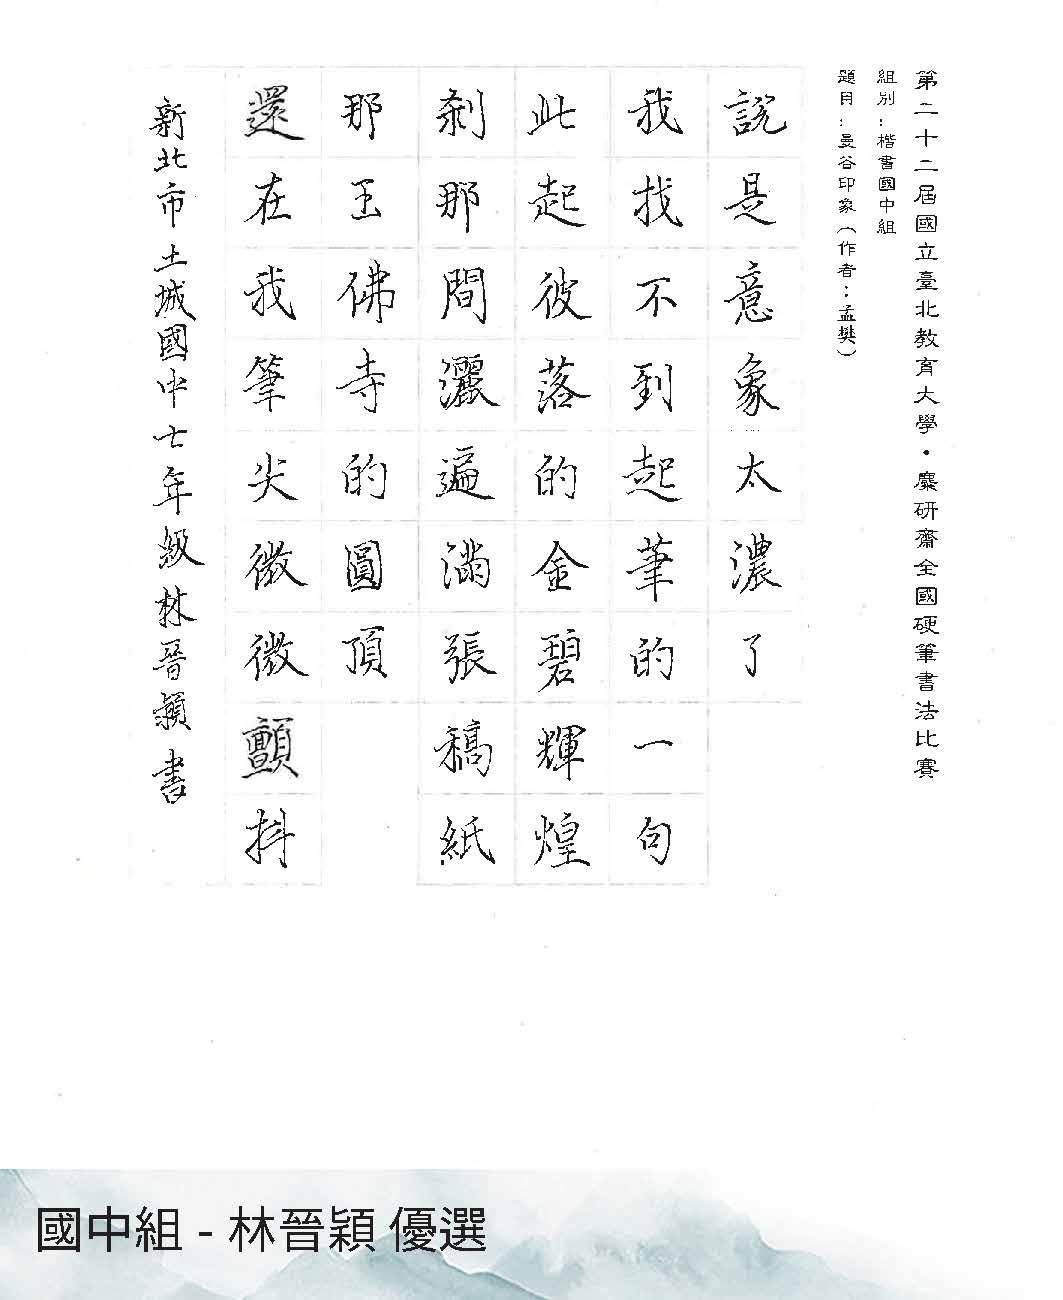 第二十二屆國立臺北教育大學・麋研齋全國硬筆書法比賽
組別：楷書國中組
題目：曼谷印象（作者：孟樊）
說是意象太濃了
我找不到起筆的一句
此起彼落的金碧輝煌
剎那間灑遍滿張稿紙
那玉佛寺的圓頂
還在我筆尖微微顫抖
新北市土城國中七年級林晉穎書
國中組 - 林晉穎 優選